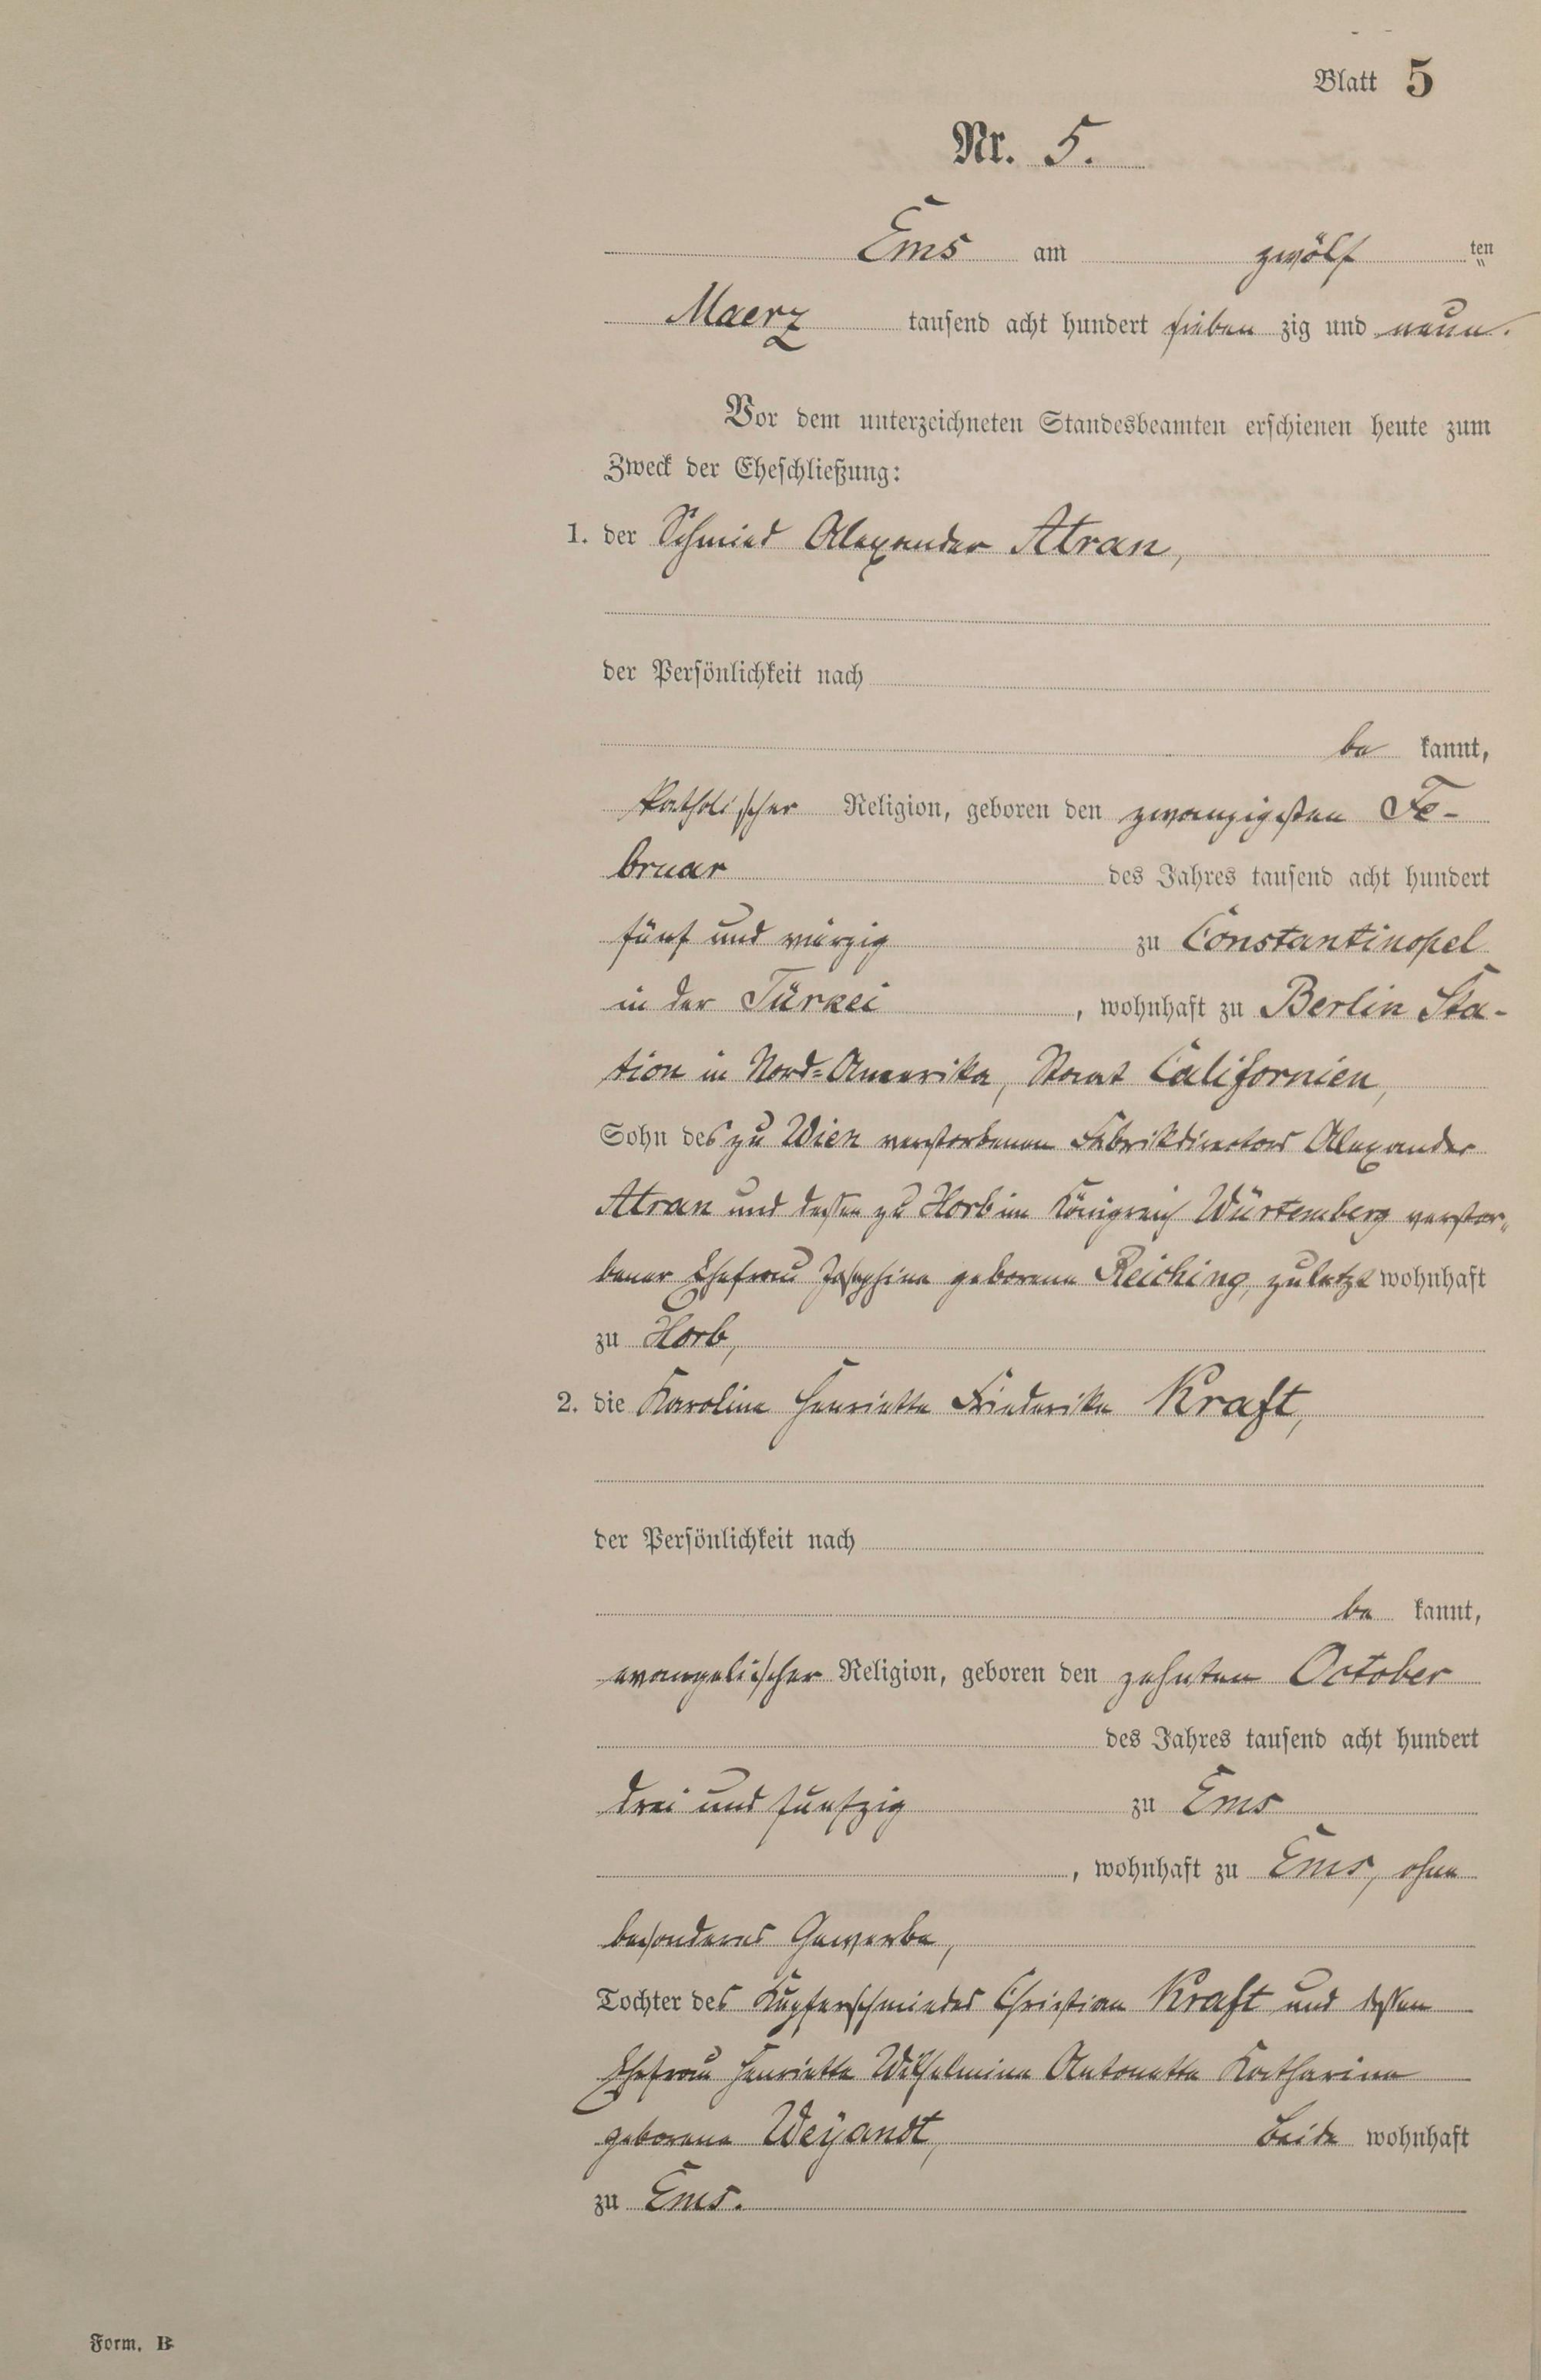 Blatt 5
Nr. 5.
Ems am zwölf ten
Maerz tausend acht hundert sieben zig und neun.
Vor dem unterzeichneten Standesbeamten erschienen heute zum
Zweck der Eheschließung:
1. der Schmied Alexander Atran,
der Persönlichkeit nach
be kannt,
katholischer Religion, geboren den zwanzigsten Fe-
bruar des Jahres tausend acht hundert
fünf und vierzig zu Constantinopel
in der Türkei, wohnhaft zu Berlin Sta-
tion in Nord-Amerika, Staat Californien,
Sohn des zu Wien verstorbenen Fabrikdirectors Alexander
Atran und dessen zu Horb im Königreich Würtemberg verstor-
bener Ehefrau Josephine geborene Reiching, zuletzt wohnhaft
zu Horb,
2. die Karoline Henriette Friederike Kraft,
der Persönlichkeit nach
be kannt,
evangelischer Religion, geboren den zehnten October
des Jahres tausend acht hundert
drei und funfzig zu Ems
, wohnhaft zu Ems, ohne
besonderes Gewerbe,
Tochter des Kupferschmiedes Christian Kraft und dessen
Ehefrau Henriette Wilhelmine Antonette Katharine
geborene Weÿandt, beide wohnhaft
zu Ems.
Form. B